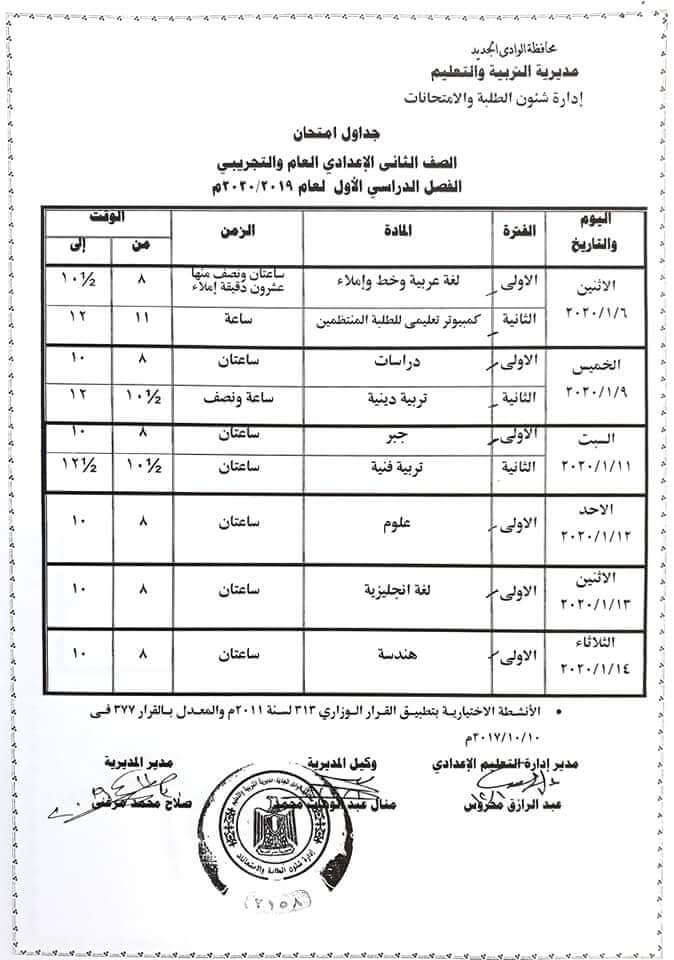 محافظة الوادى الجديد
مديرية التربية والتعليم
إدارة شئون الطلبة والامتحانات
جداول امتحان
الصف الثانى الإعدادي العام والتجريبي
الفصل الدراسي الأول لعام ٢٠٢٠/٢٠١٩م
اليوم والتاريخ الفترة المادة الزمن الوقت
من إلى
الاثنين ٢٠٢٠/١/٦ الاولى لغة عربية وخط وإملاء ساعتان ونصف منها عشرون دقيقة إملاء ٨ ١٠½
الثانية كمبيوتر تعليمى للطلبة المنتظمين ساعة ١١ ١٢
الخميس ٢٠٢٠/١/٩ الاولى دراسات ساعتان ٨ ١٠
الثانية تربية دينية ساعة ونصف ١٠½ ١٢
السبت ٢٠٢٠/١/١١ الاولى جبر ساعتان ٨ ١٠
الثانية تربية فنية ساعتان ١٠½ ١٢½
الاحد ٢٠٢٠/١/١٢ الاولى علوم ساعتان ٨ ١٠
الاثنين ٢٠٢٠/١/١٣ الاولى لغة انجليزية ساعتان ٨ ١٠
الثلاثاء ٢٠٢٠/١/١٤ الاولى هندسة ساعتان ٨ ١٠
• الأنشطة الاختيارية بتطبيق القرار الوزاري ٣١٣ لسنة ٢٠١١م والمعدل بالقرار ٣٧٧ فى
٢٠١٧/١٠/١٠م
مدير إدارة التعليم الإعدادي وكيل المديرية مدير المديرية
عبد الرازق محروس منال عبد الوهاب محمد صلاح محمد
إدارة شئون الطلبة والامتحانات
٢١٥٨